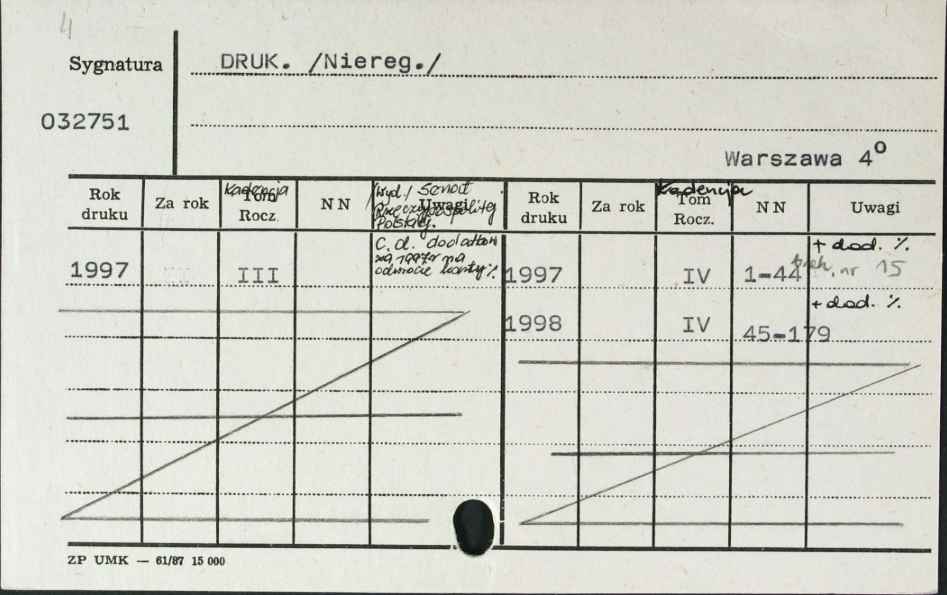 4
Sygnatura DRUK. /Niereg./
032751
Warszawa 4°
Rok druku Za rok Kadencja Tom Rocz. NN /Wyd./ Senat Rzeczypospolitej Polskiej. Uwagi Rok druku Za rok Kadencja Tom Rocz. NN Uwagi
C.d. dodatków za 1997r na odwrocie karty %
1997 III
+ dod. %
1997 IV 1-44 nr 15
+ dod. %
1998 IV 45-179
ZP UMK — 61/87 15 000